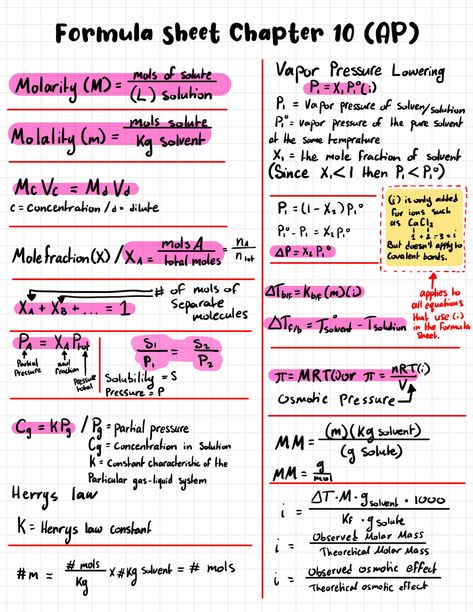 Formula sheet Chapter 10 (AP)
Molarity (M) = mols of solute / (L) solution
Molality (m) = mols solute / Kg solvent
Mc Vc = Md Vd
c = concentration / d = dilute
Mole fraction (X) / XA = mols A / total moles = nA / ntot
XA + XB + ... = 1
# of mols of
Separate
molecules
PA = XA Ptot
Partial Pressure
mol fraction
Pressure total
S1 / P1 = S2 / P2
Solubility = S
Pressure = P
Cg = KPg / Pg = Partial pressure
Cg = Concentration in Solution
K = Constant characteristic of the
Particular gas-liquid system
Henrys law
K = Henrys law constant
#m = # mols / Kg × #Kg solvent = # mols
Vapor Pressure Lowering
P1 = X1 P1° (i)
P1 = Vapor pressure of solven/solution
P1° = vapor pressure of the pure solvent
at the same temprature
X1 = the mole fraction of solvent
(Since X1 < 1 then P1 < P1°)
P1 = (1 - X2) P1°
P1° - P1 = X2 P1°
ΔP = X2 P1°
(i) is only added
for ions such
as CaCl2
1 + 2 = 3 = i
But doesn't apply to
covalent bonds.
applies to
all equations
that use (i)
in the Formula
Sheet.
ΔTb/f = Kb/f (m)(i)
ΔTf/b = T°solvent - Tsolution
π = MRT(i) or π = nRT(i) / V
Osmotic Pressure
MM = (m)(Kg solvent) / (g solute)
MM = g / mol
i = ΔT · M · g solvent · 1000 / Kf · g solute
i = Observed Molar Mass / Theoretical Molar Mass
i = Observed osmotic effect / Theoretical osmotic effect